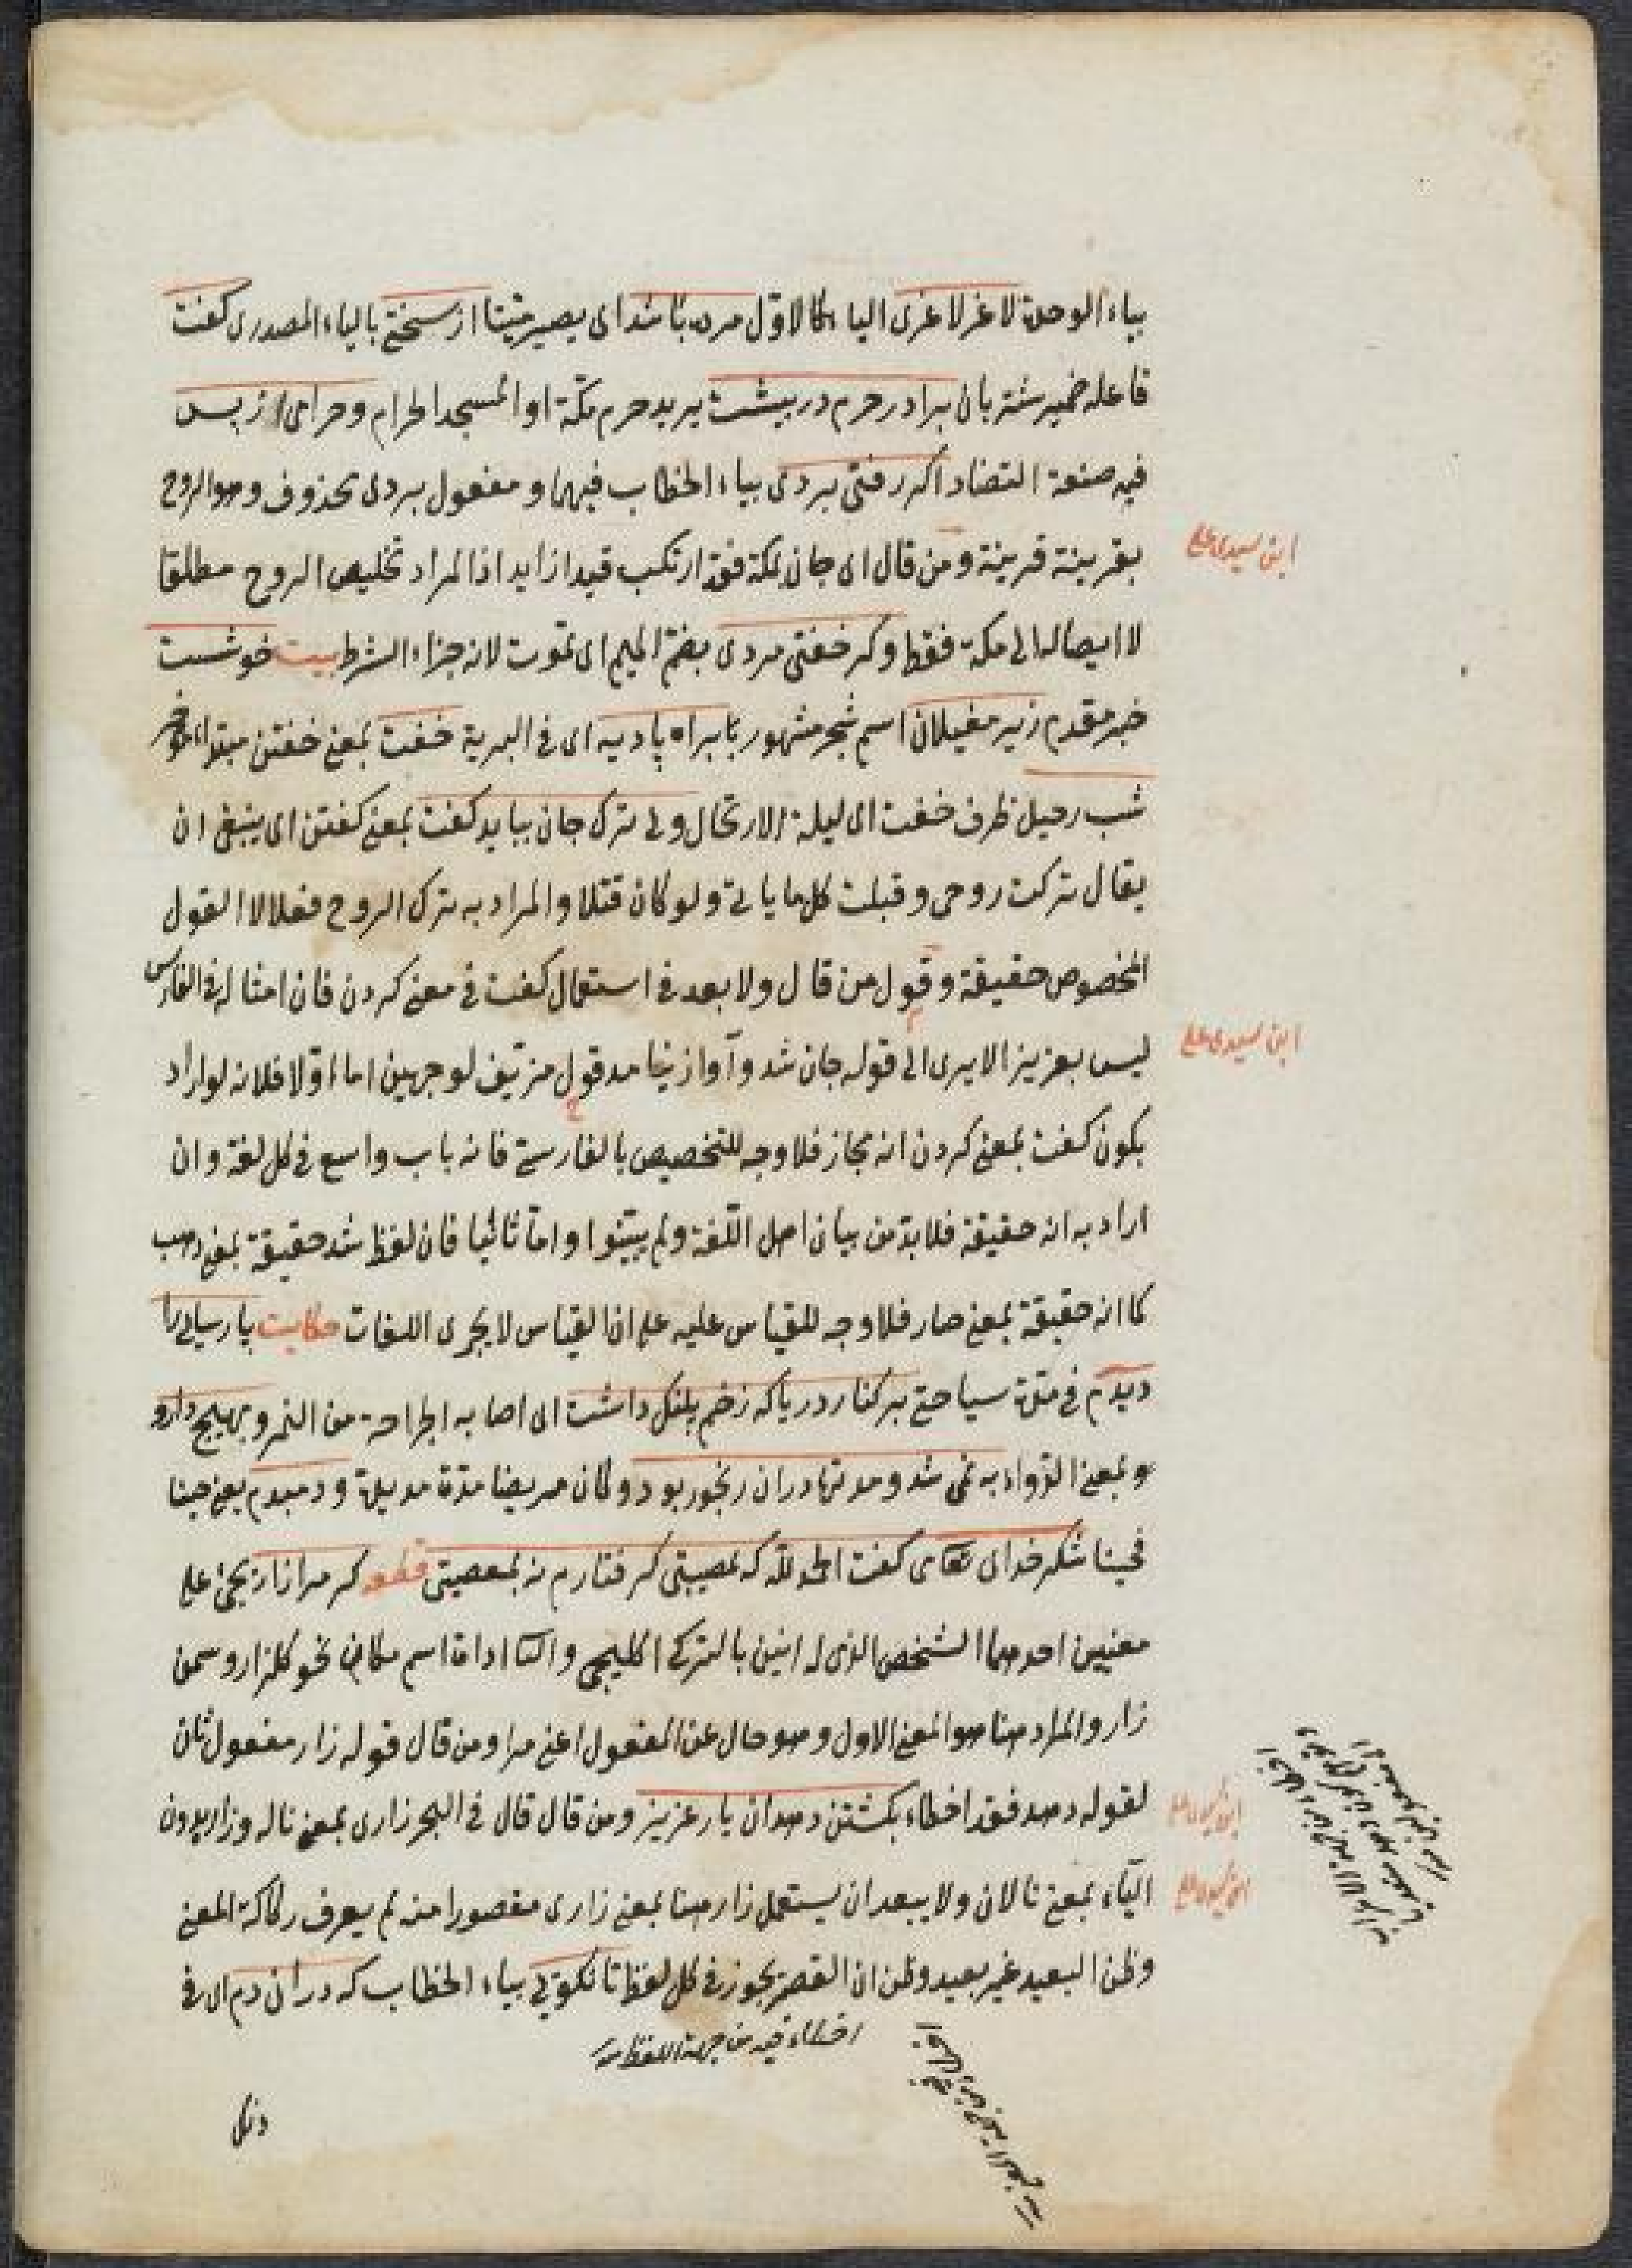 بياء الوحدة لاغر لاغرى الياء كالاول مرده باشد اى يصير ميتا از سختى بالياء المصدرى كفت
فاعله ضمير شتربان برادر حرم در پيشست يريد حرم مكة او المسجد الحرام وحرامى از پس
فيه صنعة التضاد اكر رفتى بردى بياء الخطاب فيهما ومفعول بردى محذوف وهو الروح
بقرينة قرينة ومن قال اى جان بمكة فقد ارتكب قيدا زايدا اذ المراد تخليص الروح مطلقا
لا ايصاله الى مكة فقط وكر خفتى مردى بضم الميم اى تموت لانه جزاء الشرط بيت خوشست
خبر مقدم زير مغيلان اسم شجر مشهور براه باديه اى فى البرية خفت بمعنى خفتن مبتداء مؤخر
شب رحيل ظرف خفت اى ليلة الارتحال ولى ترك جان ببايد كفت بمعنى كفتن اى ينبغى ان
يقال تركت روحى وقبلت كل ما يأتى ولو كان قتلا والمراد به ترك الروح فعلا لا القول
المخصوص حقيقة وقول من قال ولا بعد فى استعمال كفت فى معنى كردن فان امثاله فى الفارسى
ليس بعزيز الا يرى الى قوله جان شد وآواز نيامد قول مزيف لوجهين اما اولا فلانه لو اراد
بكون كفت بمعنى كردن انه مجاز فلا وجه للتخصيص بالفارسى فانه باب واسع فى كل لغة وان
اراد به انه حقيقة فلا بد من بيان اهل اللغة ولم يبينوا واما ثانيا فان لفظ شد حقيقة بمعنى ذهب
كما انه حقيقة بمعنى صار فلا وجه للقياس عليه على ان القياس لا يجرى اللغات حكايت پارسايى را
ديدم فى مدة سياحتى بر كنار دريا كه زخم پلنك داشت اى اصابه الجراحة من النمر وبهيچ دارو
و بمعنى الدواء به نمى شد ومدتها دران رنجور بود وكان مريضا مدة مديدة ودمبدم يعنى حينا
فحينا شكر خداى تعالى كفت الحمد لله كه بمصيبتى كرفتارم نه بمعصيتى قطعه كر مرا زار يجئ على
معنيين احدهما الشخص الذى له انين بالتركى اكليجى والثانى اداة اسم مكان نحو كلزار وسمن
زار والمراد هنا هو المعنى الاول وهو حال عن المفعول اعنى مرا ومن قال قوله زار مفعول ثان
لقوله دهد فقد اخطاء بكشتن دهد آن يار عزيز ومن قال قال فى البحر زارى بمعنى ناله وزار بدون
الياء بمعنى نالان ولا يبعد ان يستعمل زار هنا بمعنى زارى مقصورا منه لم يعرف ركاكة المعنى
وظن البعيد غير بعيد وظن ان القصر يجوز فى كل لفظ تا نكويى بياء الخطاب كه در آن دم اى فى
ابن سيدى على
ابن سيدى على
ابن سيدى على
ابن سيدى على
اخطاء فيه من جهة اللفظ منه